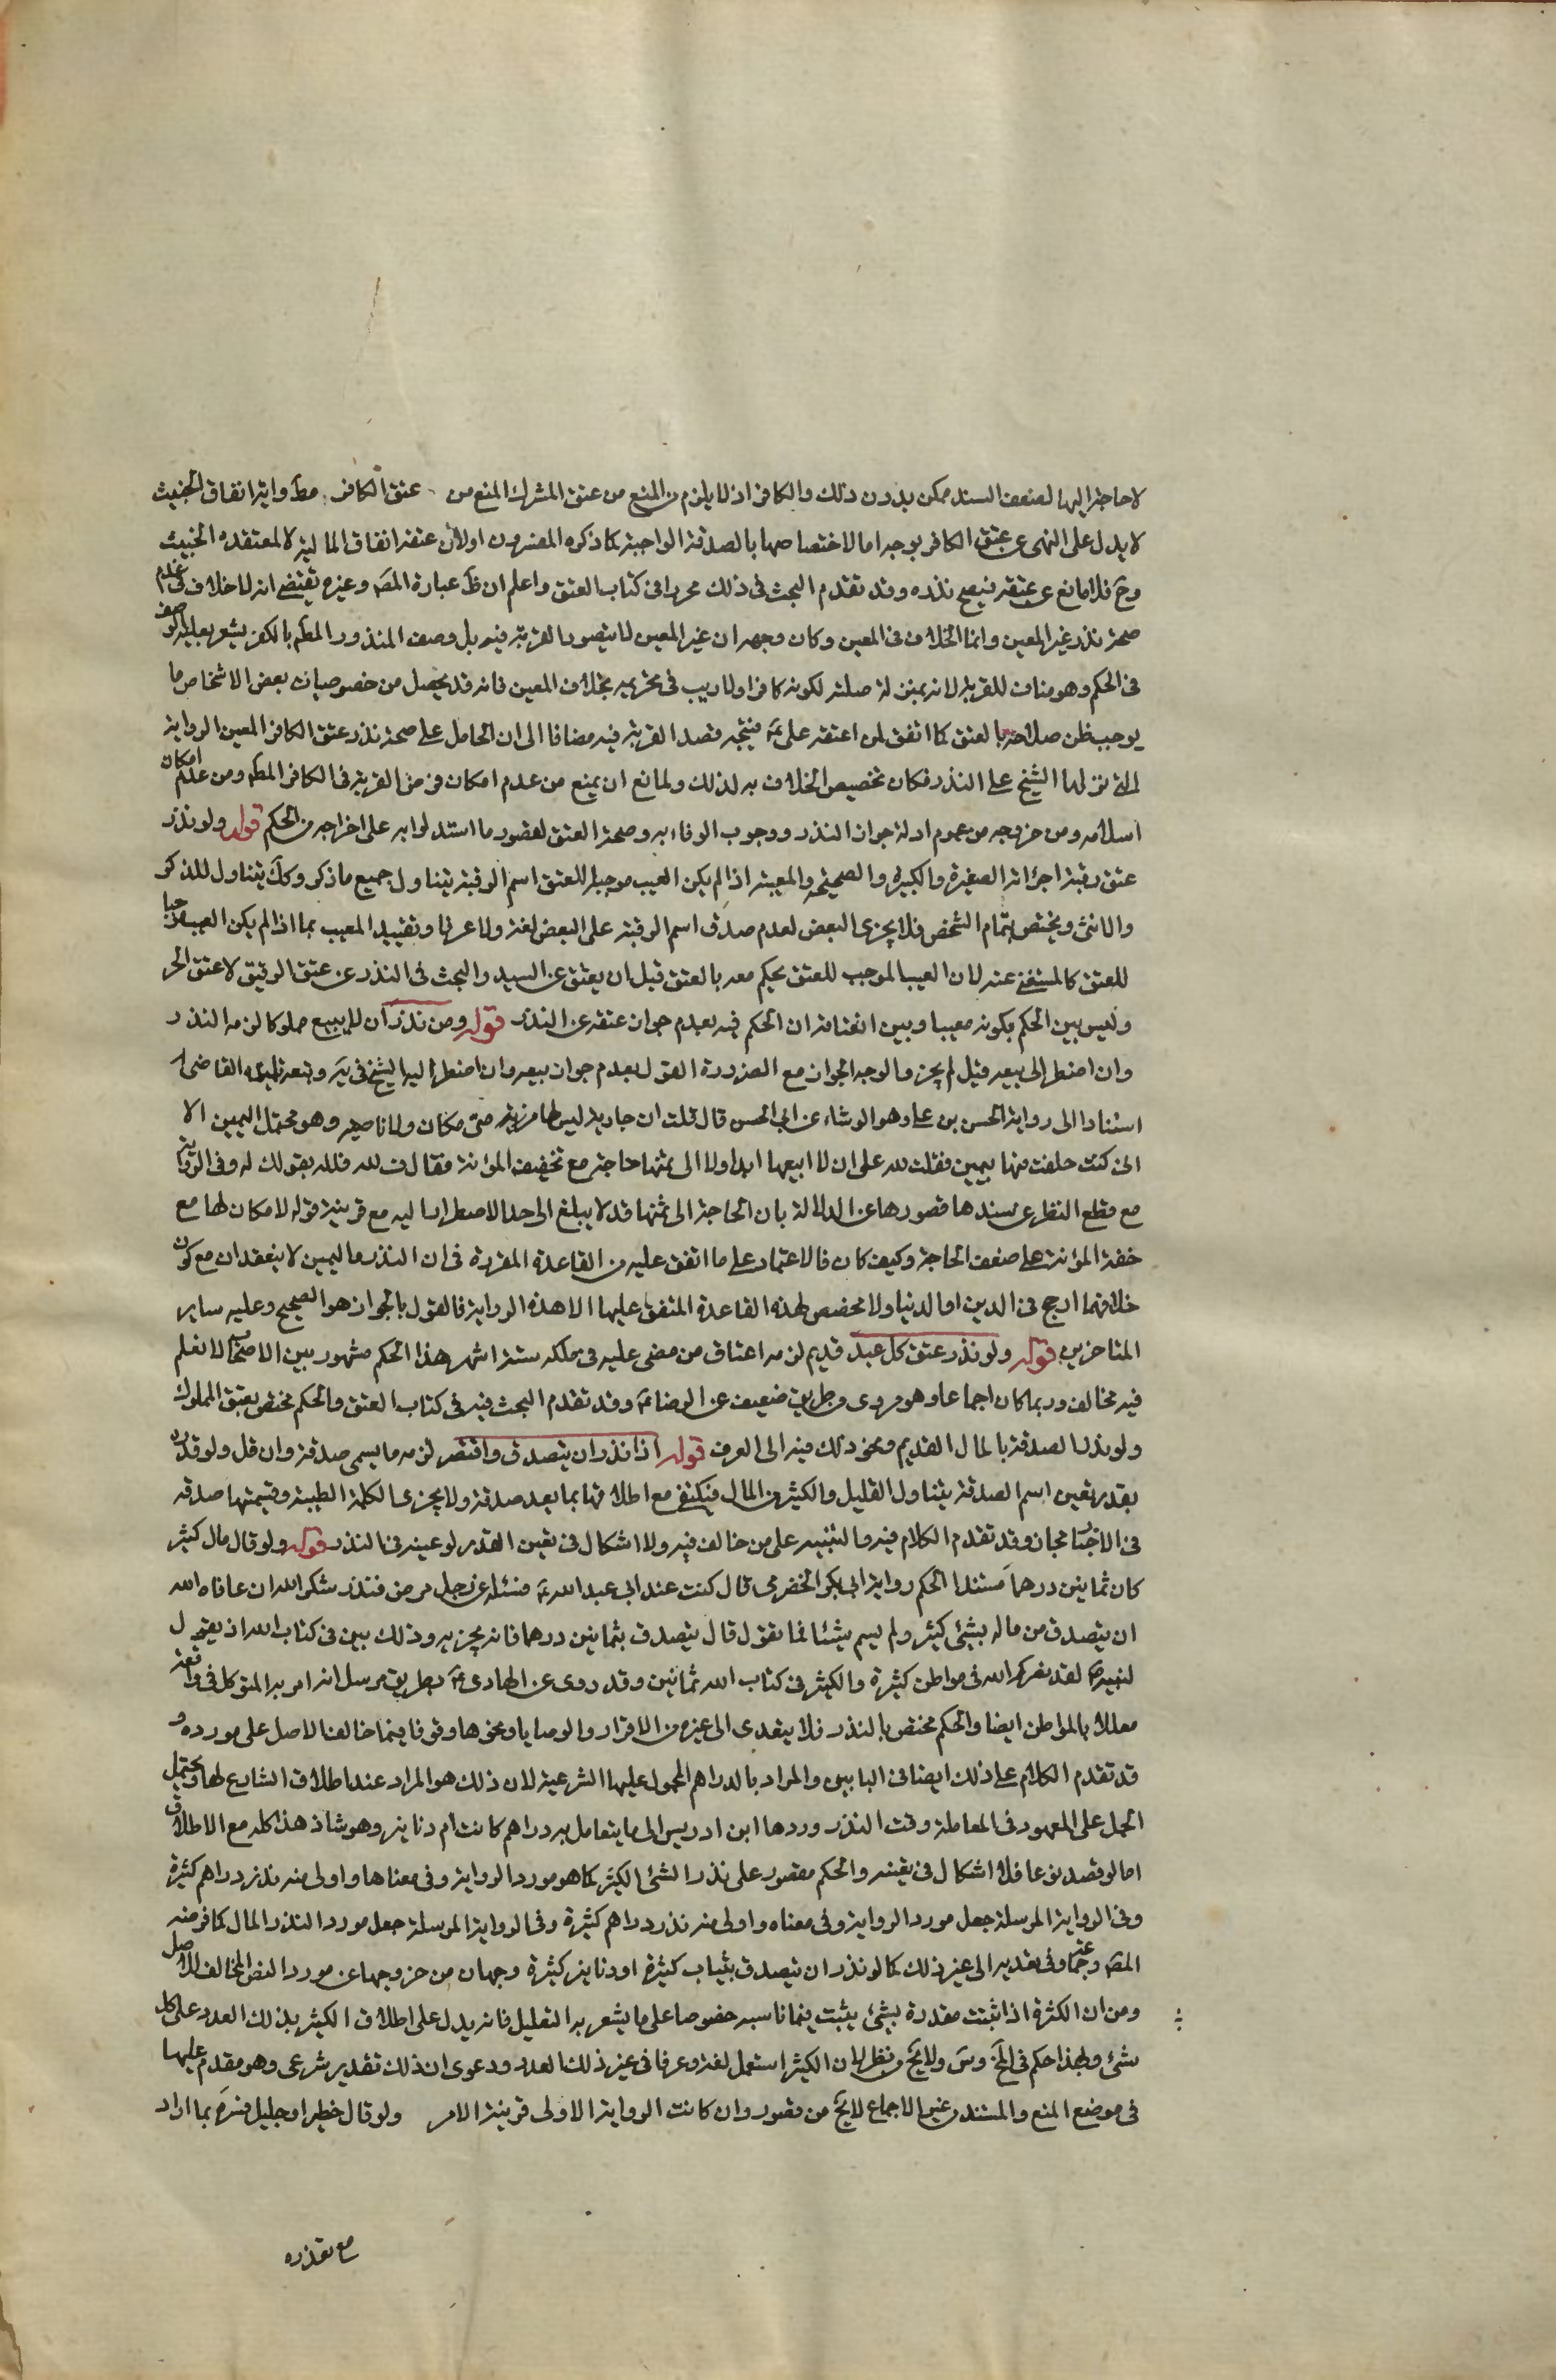 لا حاجة اليها لضعف السند ممكن بدون ذلك والكافر اذ لا يلزم من المنع من عتق المشرك المنع من عتق الكافر مط واية انفاق الخبيث
لا يدل على النهى عن عتق الكافر بوجه اما لاختصاصها بالصدقة الواجبة كما ذكره المفسرون او لأن عتقه انفاق المالية لا لمعتقده الخبيث
وح فلا مانع عن عتقه فيصح نذره وقد تقدم البحث فى ذلك محررا فى كتاب العتق واعلم ان ظ عبارة المصه وغيره تقتضى انه لا خلاف فى عدم
صحة نذر غير المعين وانما الخلاف فى المعين وكان وجهه ان غير المعين لا يتصور القربة فيه بل وصف المنذور المط بالكفر يشعر بعلية الوصف
فى الحكم وهو مناف للقربة لانه بمنزلة صلته لكونه كافرا ولا ريب فى تحريمه بخلاف المعين فانه قد يحصل من خصوصيات بعض الاشخاص ما
يوجب ظن صلاحه بالعتق كما اتفق لمن اعتقه على ع فيتجه قصد القربة فيه مضافا الى ان الحامل على صحة نذر عتق الكافر المعين الرواية
التى نزلها الشيخ على النذر فكان تخصيص الخلاف به لذلك ولمانع ان يمنع من عدم امكان فرض القربة فى الكافر المط ومن عدم امكان
اسلامه ومن خروجه من عموم ادلة جواز النذر ووجوب الوفاء به وصحة العتق لقصور ما استدلوا به على اخراجه من الحكم قوله ولو نذر
عتق رقبة اجزاته الصغيرة والكبيرة والصحيحة والمعيبة اذا لم يكن العيب موجبا للعتق اسم الرقبة يتناول جميع ما ذكر وكك يتناول للذكر
والانثى ويختص بتمام الشخص فلا يجزى البعض لعدم صدق اسم الرقبة على البعض لغة ولا عرفا وتقييد المعيب بما اذا لم يكن العيب موجبا
للعتق كالمستغنى عنه لان العيب الموجب للعتق يحكم معه بالعتق قبل ان يعتق عن السيد والبحث فى النذر عن عتق الرقيق لا عتق الحر
وليس بين الحكم بكونه معيبا وبين انعتاقه ان الحكم فيه بعدم جواز عتقه عن النذر قوله ومن نذر ان لا يبيع مملوكا لزمه النذر
وان اضطر الى بيعه قيل لم يجز والوجه الجواز مع الضرورة القول بعدم جواز بيعه وان اضطر اليه للشيخ فى ية وتبعه تلميذه القاضى
استنادا الى رواية الحسن بن على وهو الوشاء عن ابى الحسن قال قلت ان جارية ليس لها منى مكان ولا ناصية وهو محتمل اليمين الا
انى كنت حلفت منها بيمين فقلت لله على ان لا ابيعها ابدا ولا الى ثمنها حاجة مع تخفيف المؤنة فقال ف لله فلله بقولك له وفى الرواية
مع قطع النظر عن سندها قصورها عن الدلالة بان الحاجة الى ثمنها قد لا يبلغ الى حد الاضطرار اليه مع قرينة قوله لا مكان لها مع
خفة المؤنة على ضعف الحاجة وكيف كان فالاعتماد على ما اتفق عليه من القاعدة المقررة فى ان النذر واليمين لا ينعقدان مع كون
خلافهما ارجح فى الدين او الدنيا ولا مخصص لهذه القاعدة المتفق عليها الا هذه الرواية فالقول بالجواز هو الصحيح وعليه ساير
المتاخرين قوله ولو نذر عتق كل عبد قديم لزمه اعتاق من مضى عليه فى ملكه ستة اشهر هذا الحكم مشهور بين الاصحاب لا نعلم
فيه مخالف وربما كان اجماعا وهو مروى من طريق ضعيف عن الرضا ع وقد تقدم البحث فيه فى كتاب العتق والحكم مختص بعتق المملوك
ولو نذر الصدقة بالمال القديم ونحو ذلك فيه الى العرف قوله اذا نذر ان يتصدق واقتصر لزمه ما يسمى صدقة وان قل ولو قيده
بقدر تعين اسم الصدقة يتناول القليل والكثير من المال فيكتفى مع اطلاقها بما يعد صدقة ولا يجزى الكلمة الطيبة وتسميتها صدقة
فى الاخبار مجاز وقد تقدم الكلام فيه والتنبيه على من خالف فيه ولا اشكال فى تعين القدر لو عينه فى النذر قوله ولو قال مال كثير
كان ثمانين درهما مستند الحكم رواية ابى بكر الحضرمى قال كنت عند ابى عبد الله ع فسئله عن رجل مرض فنذر شكر الله ان عافاه الله
ان يتصدق من ماله بشئ كثير ولم يسم شيئا فما تقول قال يتصدق بثمانين درهما فانه يجزيه وذلك بين فى كتاب الله اذ يقول
لنبيه ص لقد نصركم الله فى مواطن كثيرة والكثير فى كتاب الله ثمانين وقد روى عن الهادى ع بطريق مرسل انه امر به المتوكل فى واقعة
معللا بالمواطن ايضا والحكم مختص بالنذر فلا يتعدى الى غيره من الاقرار والوصايا ونحوها وقوفا فيما خالف الاصل على مورده و
قد تقدم الكلام على ذلك ايضا فى البابين والمراد بالدراهم المحمول عليها الشرعية لان ذلك هو المراد عند اطلاق الشارع لها ويحتمل
الحمل على المعهود فى المعاملة وقت النذر وردها ابن ادريس الى ما يتعامل به دراهم كانت ام دنانير وهو شاذ هذا كله مع الاطلاق
اما لو قصد نوعا فلا اشكال فى تعينه والحكم مقصور على نذر الشئ الكثير كما هو مورد الرواية وفى معناها واولى منه نذر دراهم كثيرة
وفى الرواية المرسلة جعل مورد الرواية وفى معناه واولى منه نذر دراهم كثيرة وفى الرواية المرسلة جعل مورد النذر المال كما فرضه
المصه وجماعة وفى تعديه الى غير ذلك كما لو نذر ان يتصدق بثياب كثيرة او دنانير كثيرة وجهان من خروجها عن مورد النص المخالف للاصل
ومن ان الكثرة اذا ثبتت مقدرة بشئ يثبت فيما ناسبه خصوصا على ما يشعر به التعليل فانه يدل على اطلاق الكثير بذلك العدد على كل
شئ ولهذا حكم فى لخ وس ولا يخ من نظر لان الكثير استعمل لغة وعرفا فى غير ذلك العدد ودعوى ان ذلك تقدير شرعى وهو مقدم عليها
فى موضع المنع والمستند من غير الاجماع لا يخ من قصور وان كانت الرواية الاولى قرينة الامر ولو قال خطير او جليل فسره بما اراد
مع تعذره